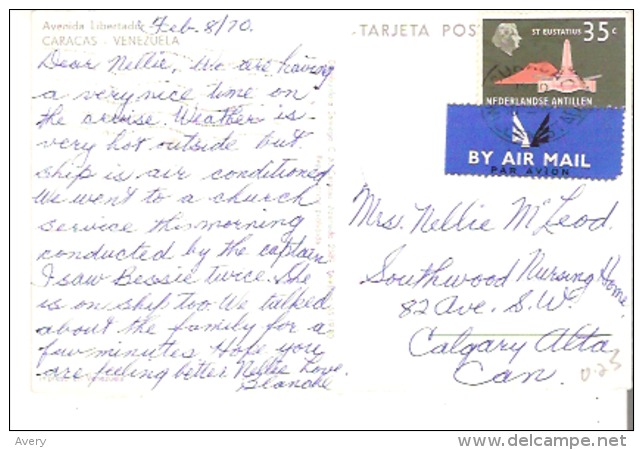 Avenida Libertador
CARACAS - VENEZUELA
Feb. 8/70.
Dear Nellie, We are having
a very nice time on
the cruise. Weather is
very hot outside but
ship is air conditioned.
We went to a church
service this morning
conducted by the captain
I saw Bessie twice. She
is on ship too. We talked
about the family for a
few minutes. Hope you
are feeling better Nellie Love.
Blanche
TARJETA POST
ST EUSTATIUS 35 c
NEDERLANDSE ANTILLEN
BY AIR MAIL
PAR AVION
Mrs. Nellie McLeod.
Southwood Nursing Home,
82 Ave. S.W.
Calgary Alta,
Can.
0.25
Avery
www.delcampe.net